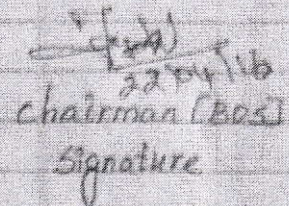 22/04/16
chairman [BOS]
signature